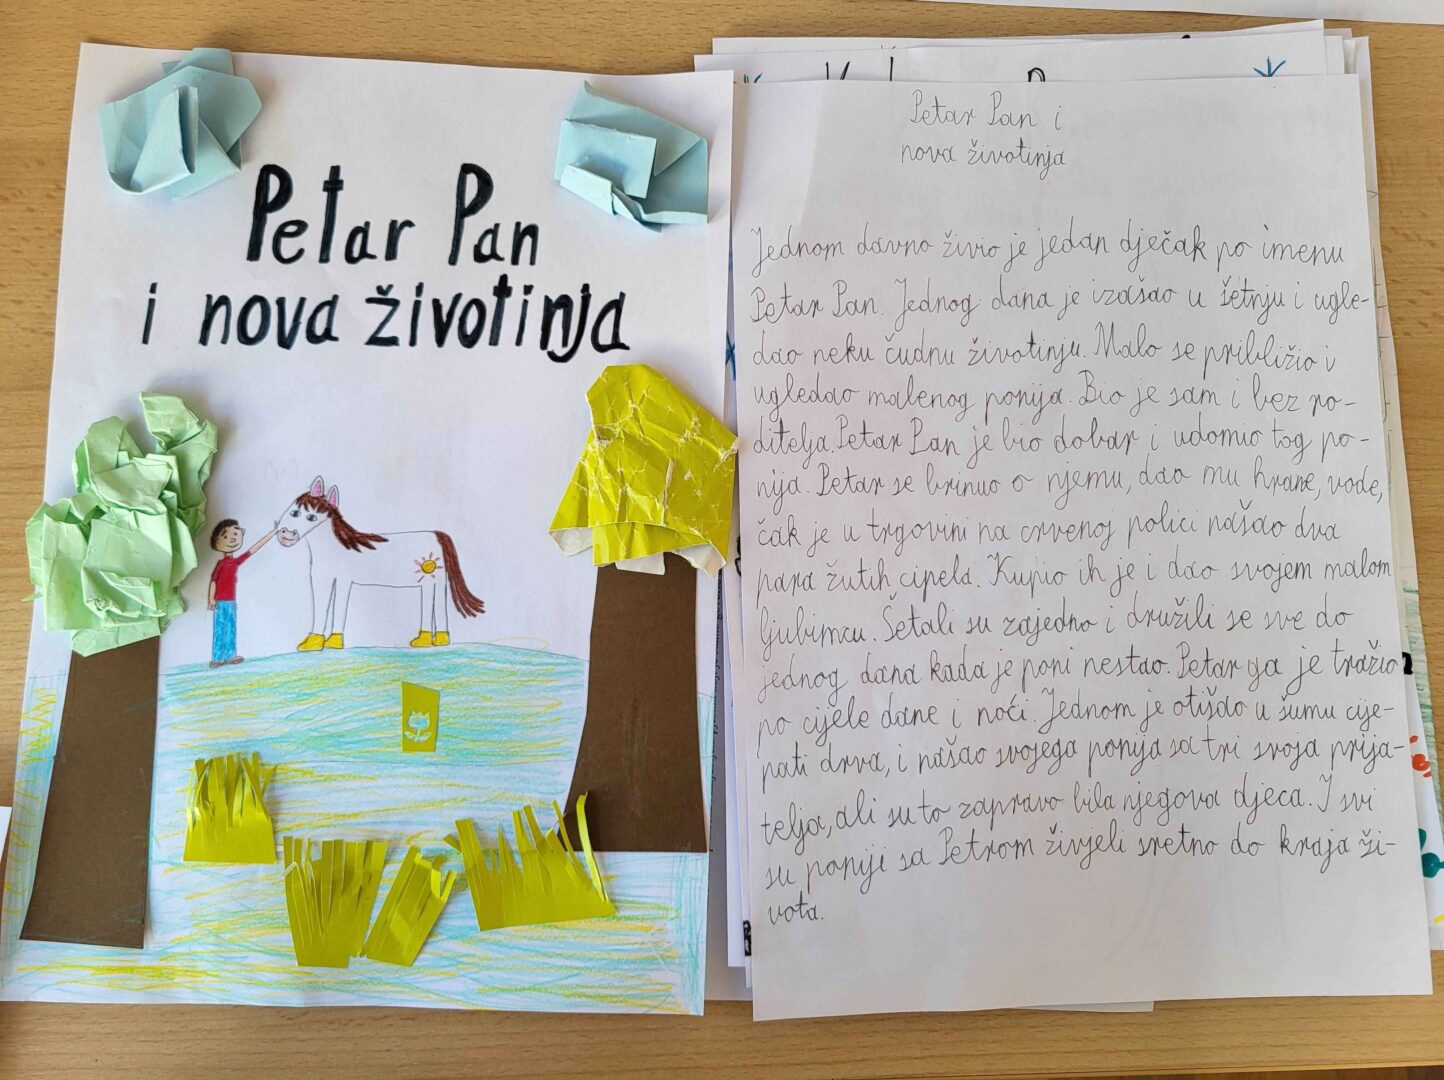 Petar Pan
i nova životinja
Petar Pan i
nova životinja
Jednom davno živio je jedan dječak po imenu
Petar Pan. Jednog dana je izašao u šetnju i ugle-
dao neku čudnu životinju. Malo se približio i
ugledao malenog ponija. Bio je sam i bez ro-
ditelja. Petar Pan je bio dobar i udomio tog po-
nija. Petar se brinuo o njemu, dao mu hrane, vode,
čak je u trgovini na crvenoj polici našao dva
para žutih cipela. Kupio ih je i dao svojem malom
ljubimcu. Šetali su zajedno i družili se sve do
jednog dana kada je poni nestao. Petar ga je tražio
po cijele dane i noći. Jednom je otišao u šumu cije-
pati drva, i našao svojega ponija sa tri svoja prija-
telja, ali su to zapravo bila njegova djeca. I svi
su poniji sa Petrom živjeli sretno do kraja ži-
vota.